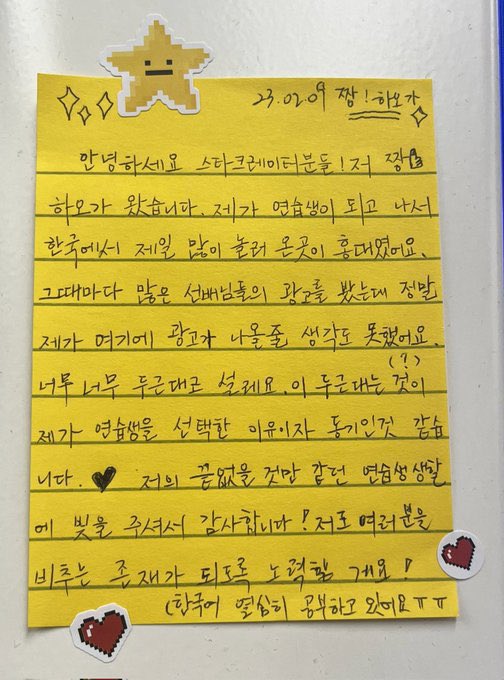 23.02.09 짱! 하오가
안녕하세요 스타크레이터분들! 저 짱
하오가 왔습니다. 제가 연습생이 되고 나서
한국에서 제일 많이 놀러 온곳이 홍대였어요.
그때마다 많은 선배님들의 광고를 봤는데 정말
제가 여기에 광고가 나올줄 생각도 못했어요.
(?)
너무 너무 두근대고 설레요. 이 두근대는 것이
제가 연습생을 선택한 이유이자 동기인것 같습
니다. ♥ 저의 끝없을 것만 같던 연습생생활
에 빛을 주셔서 감사합니다! 저도 여러분을
비추는 존재가 되도록 노력할 게요!
(한국어 열심히 공부하고 있어요ㅠㅠ